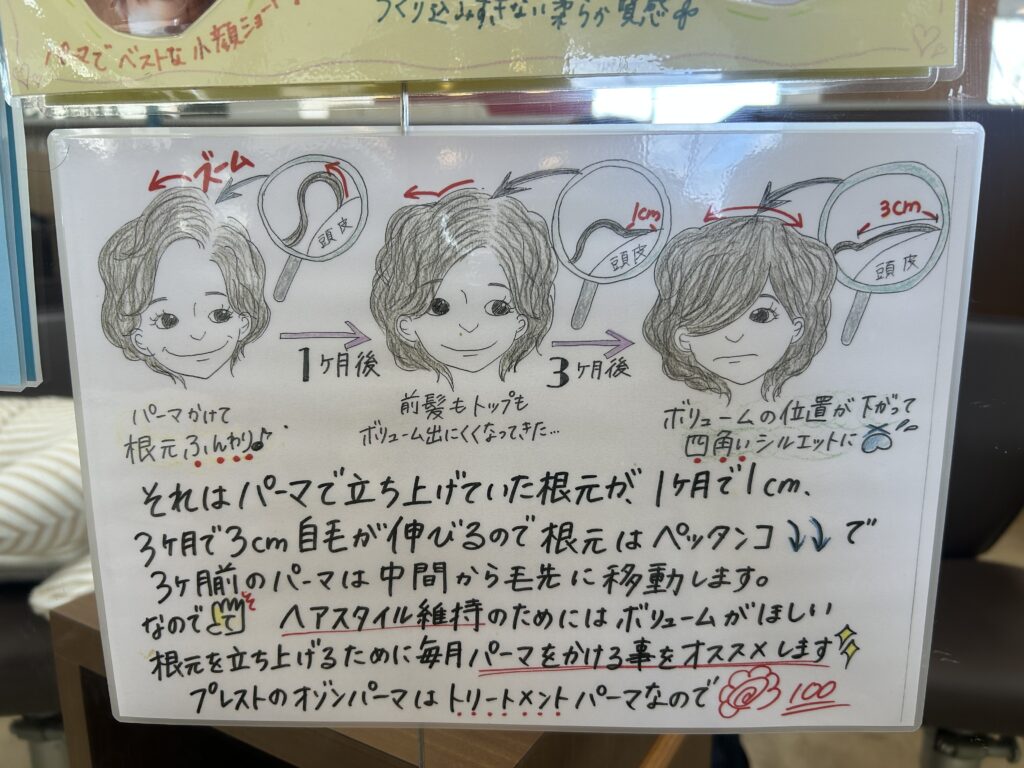 パーマでベストな小顔ショート
つくり込みすぎない柔らか質感
ズーム
頭皮
1cm
頭皮
3cm
頭皮
1ヶ月後
3ヶ月後
パーマかけて
根元ふんわり♪
前髪もトップも
ボリューム出にくくなってきた…
ボリュームの位置が下がって
四角いシルエットに
それはパーマで立ち上げていた根元が、1ヶ月で1cm、
3ヶ月で3cm自毛が伸びるので根元はペッタンコ↓↓で
3ヶ月前のパーマは中間から毛先に移動します。
なので ヘアスタイル維持のためにはボリュームがほしい
根元を立ち上げるために毎月パーマをかける事をオススメします
プレストのオゾンパーマはトリートメントパーマなので 100